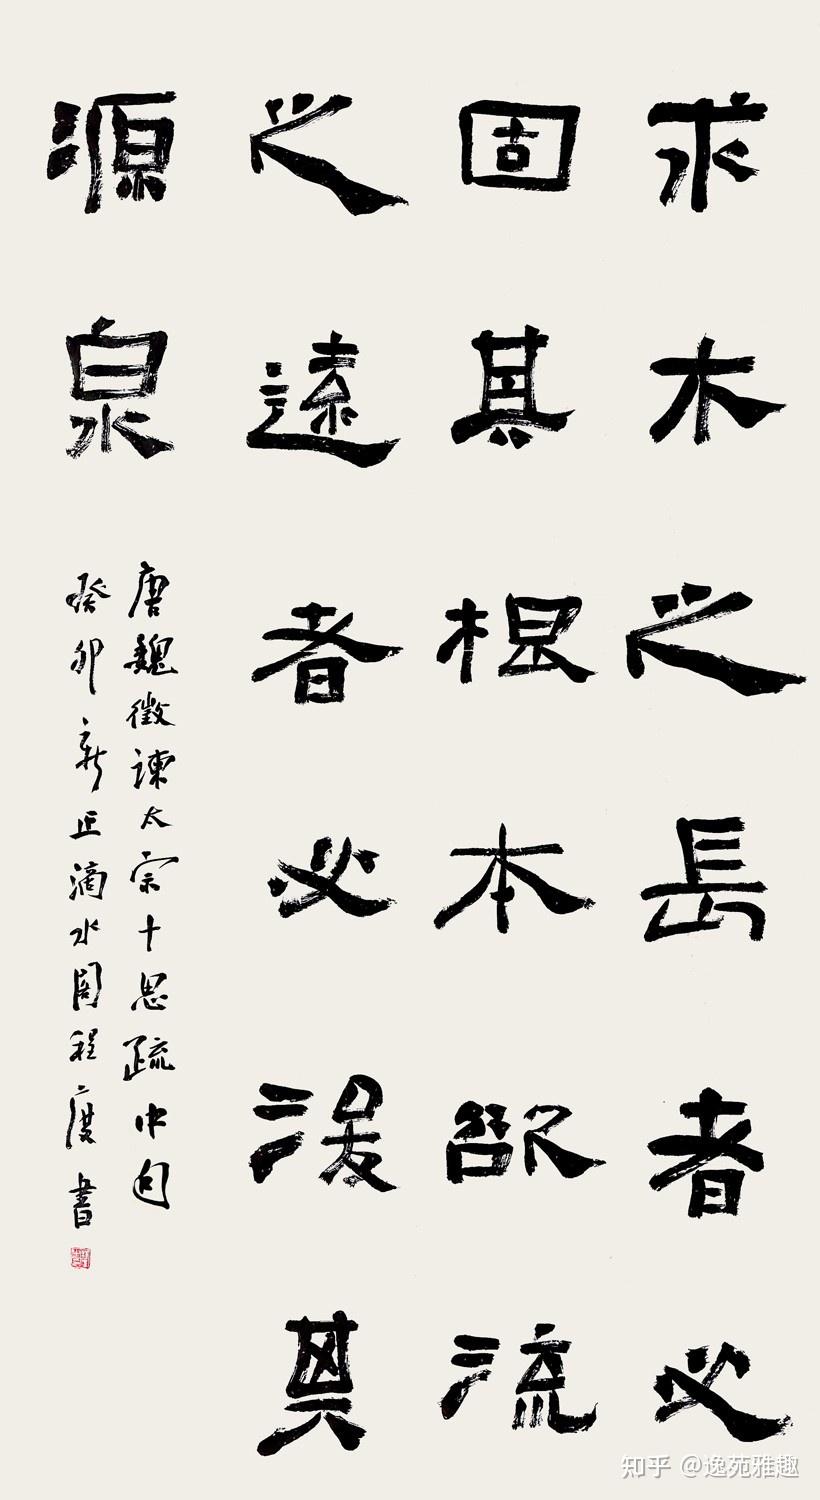 求木之長者必
固其根本欲流
之遠者必浚其
源泉
唐魏徵諫太宗十思疏中句
癸卯新正滴水閣程度書
知乎 @逸苑雅趣